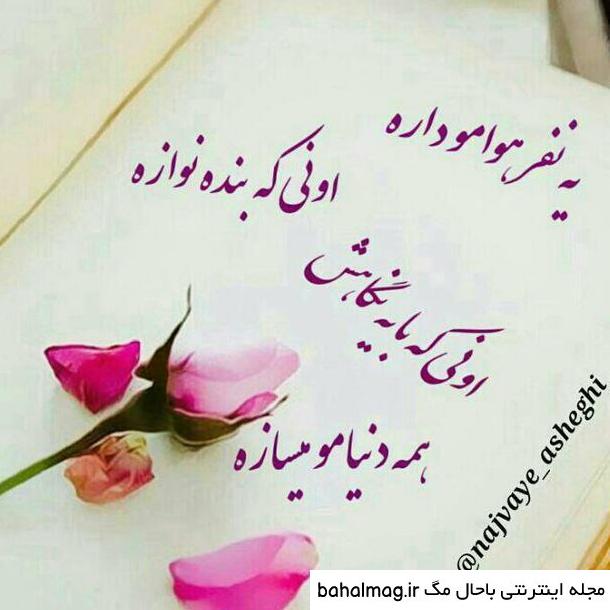 یه نفر هوامو داره
اونی که بنده نوازه
اونی که با یه نگاهش
همه دنیامو میسازه
@najvaye_asheghi
مجله اینترنتی باحال مگ bahalmag.ir